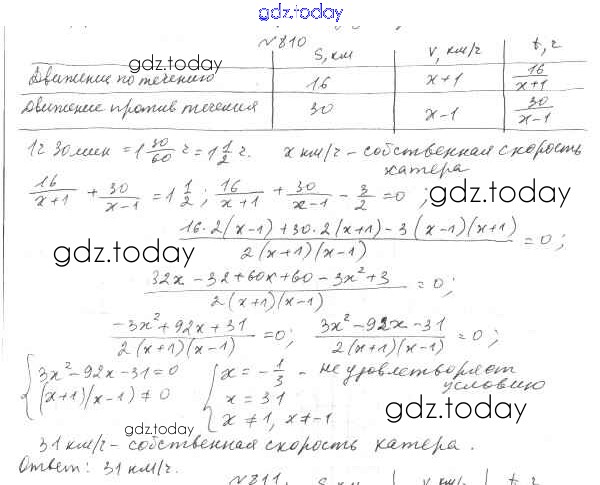 gdz.today
№810
S, км | v, км/ч | t, ч
Движение по течению | 16 | x+1 | 16/(x+1)
Движение против течения | 30 | x-1 | 30/(x-1)
gdz.today
gdz.today
1ч 30мин = 1 30/60 ч = 1 1/2 ч. x км/ч - собственная скорость
катера
16/(x+1) + 30/(x-1) = 1 1/2 ; 16/(x+1) + 30/(x-1) - 3/2 = 0 ;
gdz.today
(16·2(x-1)+30·2(x+1)-3(x-1)(x+1))/(2(x+1)(x-1)) = 0;
gdz.today
(32x-32+60x+60-3x²+3)/(2(x+1)(x-1)) = 0;
(-3x²+92x+31)/(2(x+1)(x-1)) = 0; (3x²-92x-31)/(2(x+1)(x-1)) = 0;
gdz.today
{3x²-92x-31=0 {x = -1/3 - не удовлетворяет
(x+1)(x-1)≠0 x = 31 условию
x ≠ 1, x ≠ -1
gdz.today
31 км/ч - собственная скорость катера.
Ответ: 31 км/ч.
№811.
S, км | v, км/ч | t, ч